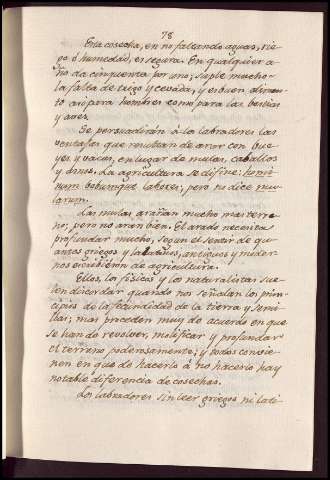 78
Esta cosecha, en no faltando aguas, rie-
go ó humedad, es segura. En qualquier a-
ño da cinquenta por uno; suple mucho
la falta de trigo y cevada, y es buen alimen-
to asi para hombres como para las bestias
y aves.
Se persuadirán á los labradores las
ventajas que resultan de arar con bue-
yes y vacas, en lugar de mulas, caballos
y asnos. La agricultura se difine: homi-
num bobumque labores; pero no dice mu-
larum.
Las mulas arañan mucho mas terre-
no; pero no aran bien. El arado necesita
profundar mucho, segun el sentir de qu-
antos griegos y latinos, antiguos y moder-
nos escribieron de agricultura.
Ellos, los fisicos y los naturalistas sue-
len discordar quando nos señalan los prin-
cipios de la fecundidad de la tierra y semi-
llas; mas proceden muy de acuerdo en que
se han de revolver, molificar y profundar
el terreno, poderosamente; y todos convie-
nen en que de hacerlo á no hacerlo hay
notable diferencia de cosechas.
Los labradores sin leer griegos ni lati-